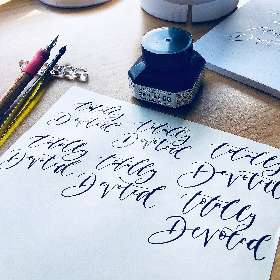 totally
Devoted
totally
Devoted
totally
Devoted
totally
Devoted
totally
Devoted
totally
Devoted